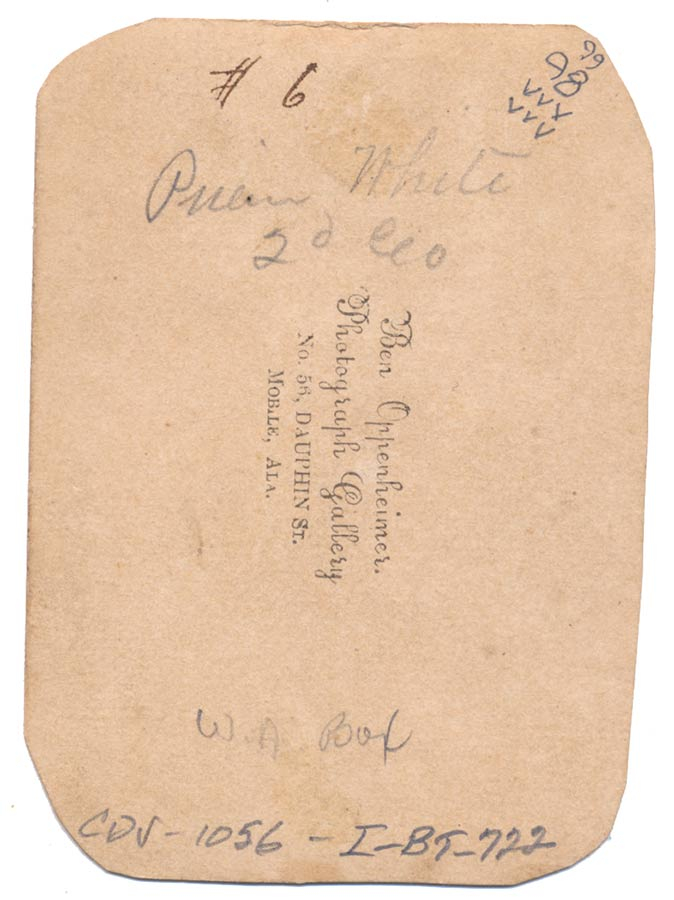 # 6
White
2d Co
Ben Oppenheimer.
Photograph Gallery
No. 56, DAUPHIN ST.
MOBILE, ALA.
W. A Box
CDV-1056-I-BT-722